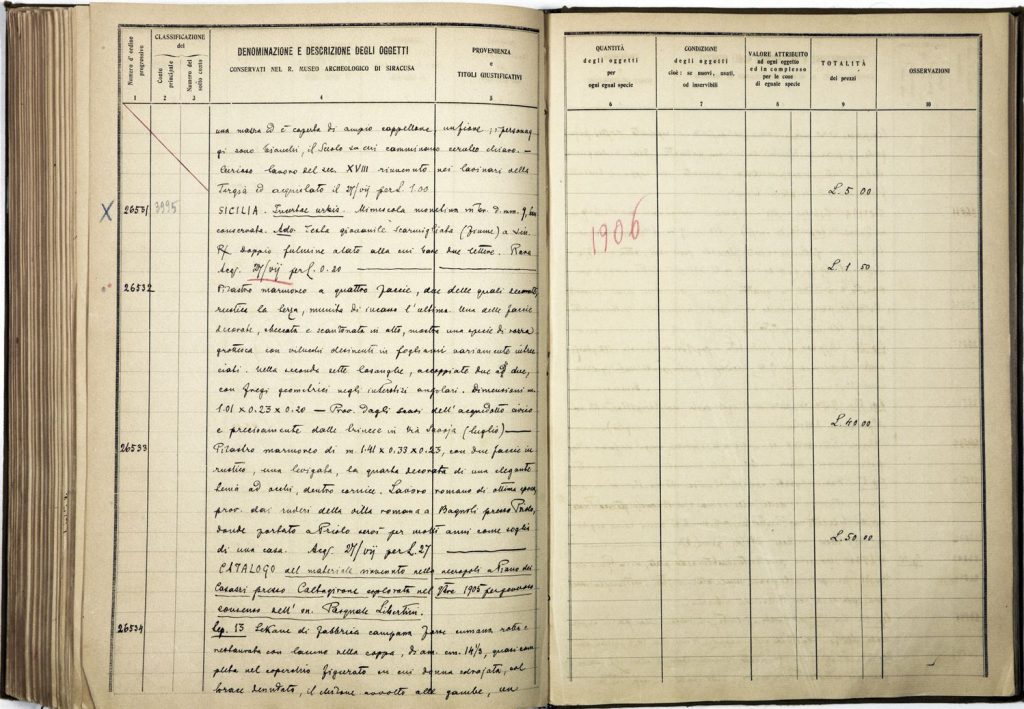 Numero d'ordine progressivo
CLASSIFICAZIONE
del
Conto principale
Numero del sotto conto
DENOMINAZIONE E DESCRIZIONE DEGLI OGGETTI
CONSERVATI NEL R. MUSEO ARCHEOLOGICO DI SIRACUSA
PROVENIENZA
e
TITOLI GIUSTIFICATIVI
1 2 3 4 5
una mazza ed è coperta di ampio cappellone, un fiore; i personag
gi sono bianchi, il suolo su cui camminano ceruleo chiaro. —
Curioso lavoro del sec. XVIII rinvenuto nei
ed acquistato il 27/vij per L. 1.00
X 26531 3995 SICILIA. Incertae urbis. monetina in br. d. mm. 9,
conservata. Adv. Testa giovanile scarmigliata (fiume) a sin.
Rx doppio fulmine alato alla cui base due lettere. Rara
Acq. 27/vij per L. 0.20
26532 Pilastro marmoreo a quattro faccie, due delle quali decorate,
rustica la terza, munita di incavo l'ultima. Una delle faccie
decorate, sbeccata e scantonata in alto, mostra una specie di
con viluchi desinenti in fogliami variamente intrec
ciati. Nella seconda sette losanghe, accoppiate due a due,
con fregi geometrici negli interstizi angolari. Dimensioni m.
1.01 x 0.23 x 0.20 — Prov. dagli scavi dell'acquedotto civico
e precisamente dalle trincee in Via Savoja (luglio)
26533 Pilastro marmoreo di m. 1.41 x 0.33 x 0.23, con due faccie in
rustico, una levigata, la quarta decorata di una elegante
ad occhi, dentro cornice. Lavoro romano di ottima epoca,
prov. dai ruderi della villa romana a Bagnoli presso Priolo,
donde portato a Priolo servì per molti anni come soglia
di una casa. Acq. 27/vij per L. 27
CATALOGO del materiale rinvenuto nella necropoli a Piano dei
Casazzi presso Caltagirone esplorata nel 9bre 1905 per
consenso dell' on. Pasquale Libertini.
26534 Sep. 13 Lekane di fabbrica campana forse cumana rotta e
restaurata con lacune nella coppa, diam. cm. 14½, quasi com
pleta nel coperchio figurato su cui donna sdrajata, col
torace denudato, il chitone avvolto alle gambe, un
QUANTITÀ
degli oggetti
per
ogni egual specie
CONDIZIONE
degli oggetti
cioè: se nuovi, usati,
od inservibili
VALORE ATTRIBUITO
ad ogni oggetto
ed in complesso
per le cose
di eguale specie
TOTALITÀ
dei prezzi
OSSERVAZIONI
6 7 8 9 10
1906
L. 5 00
L. 1 50
L. 40 00
L. 50 00